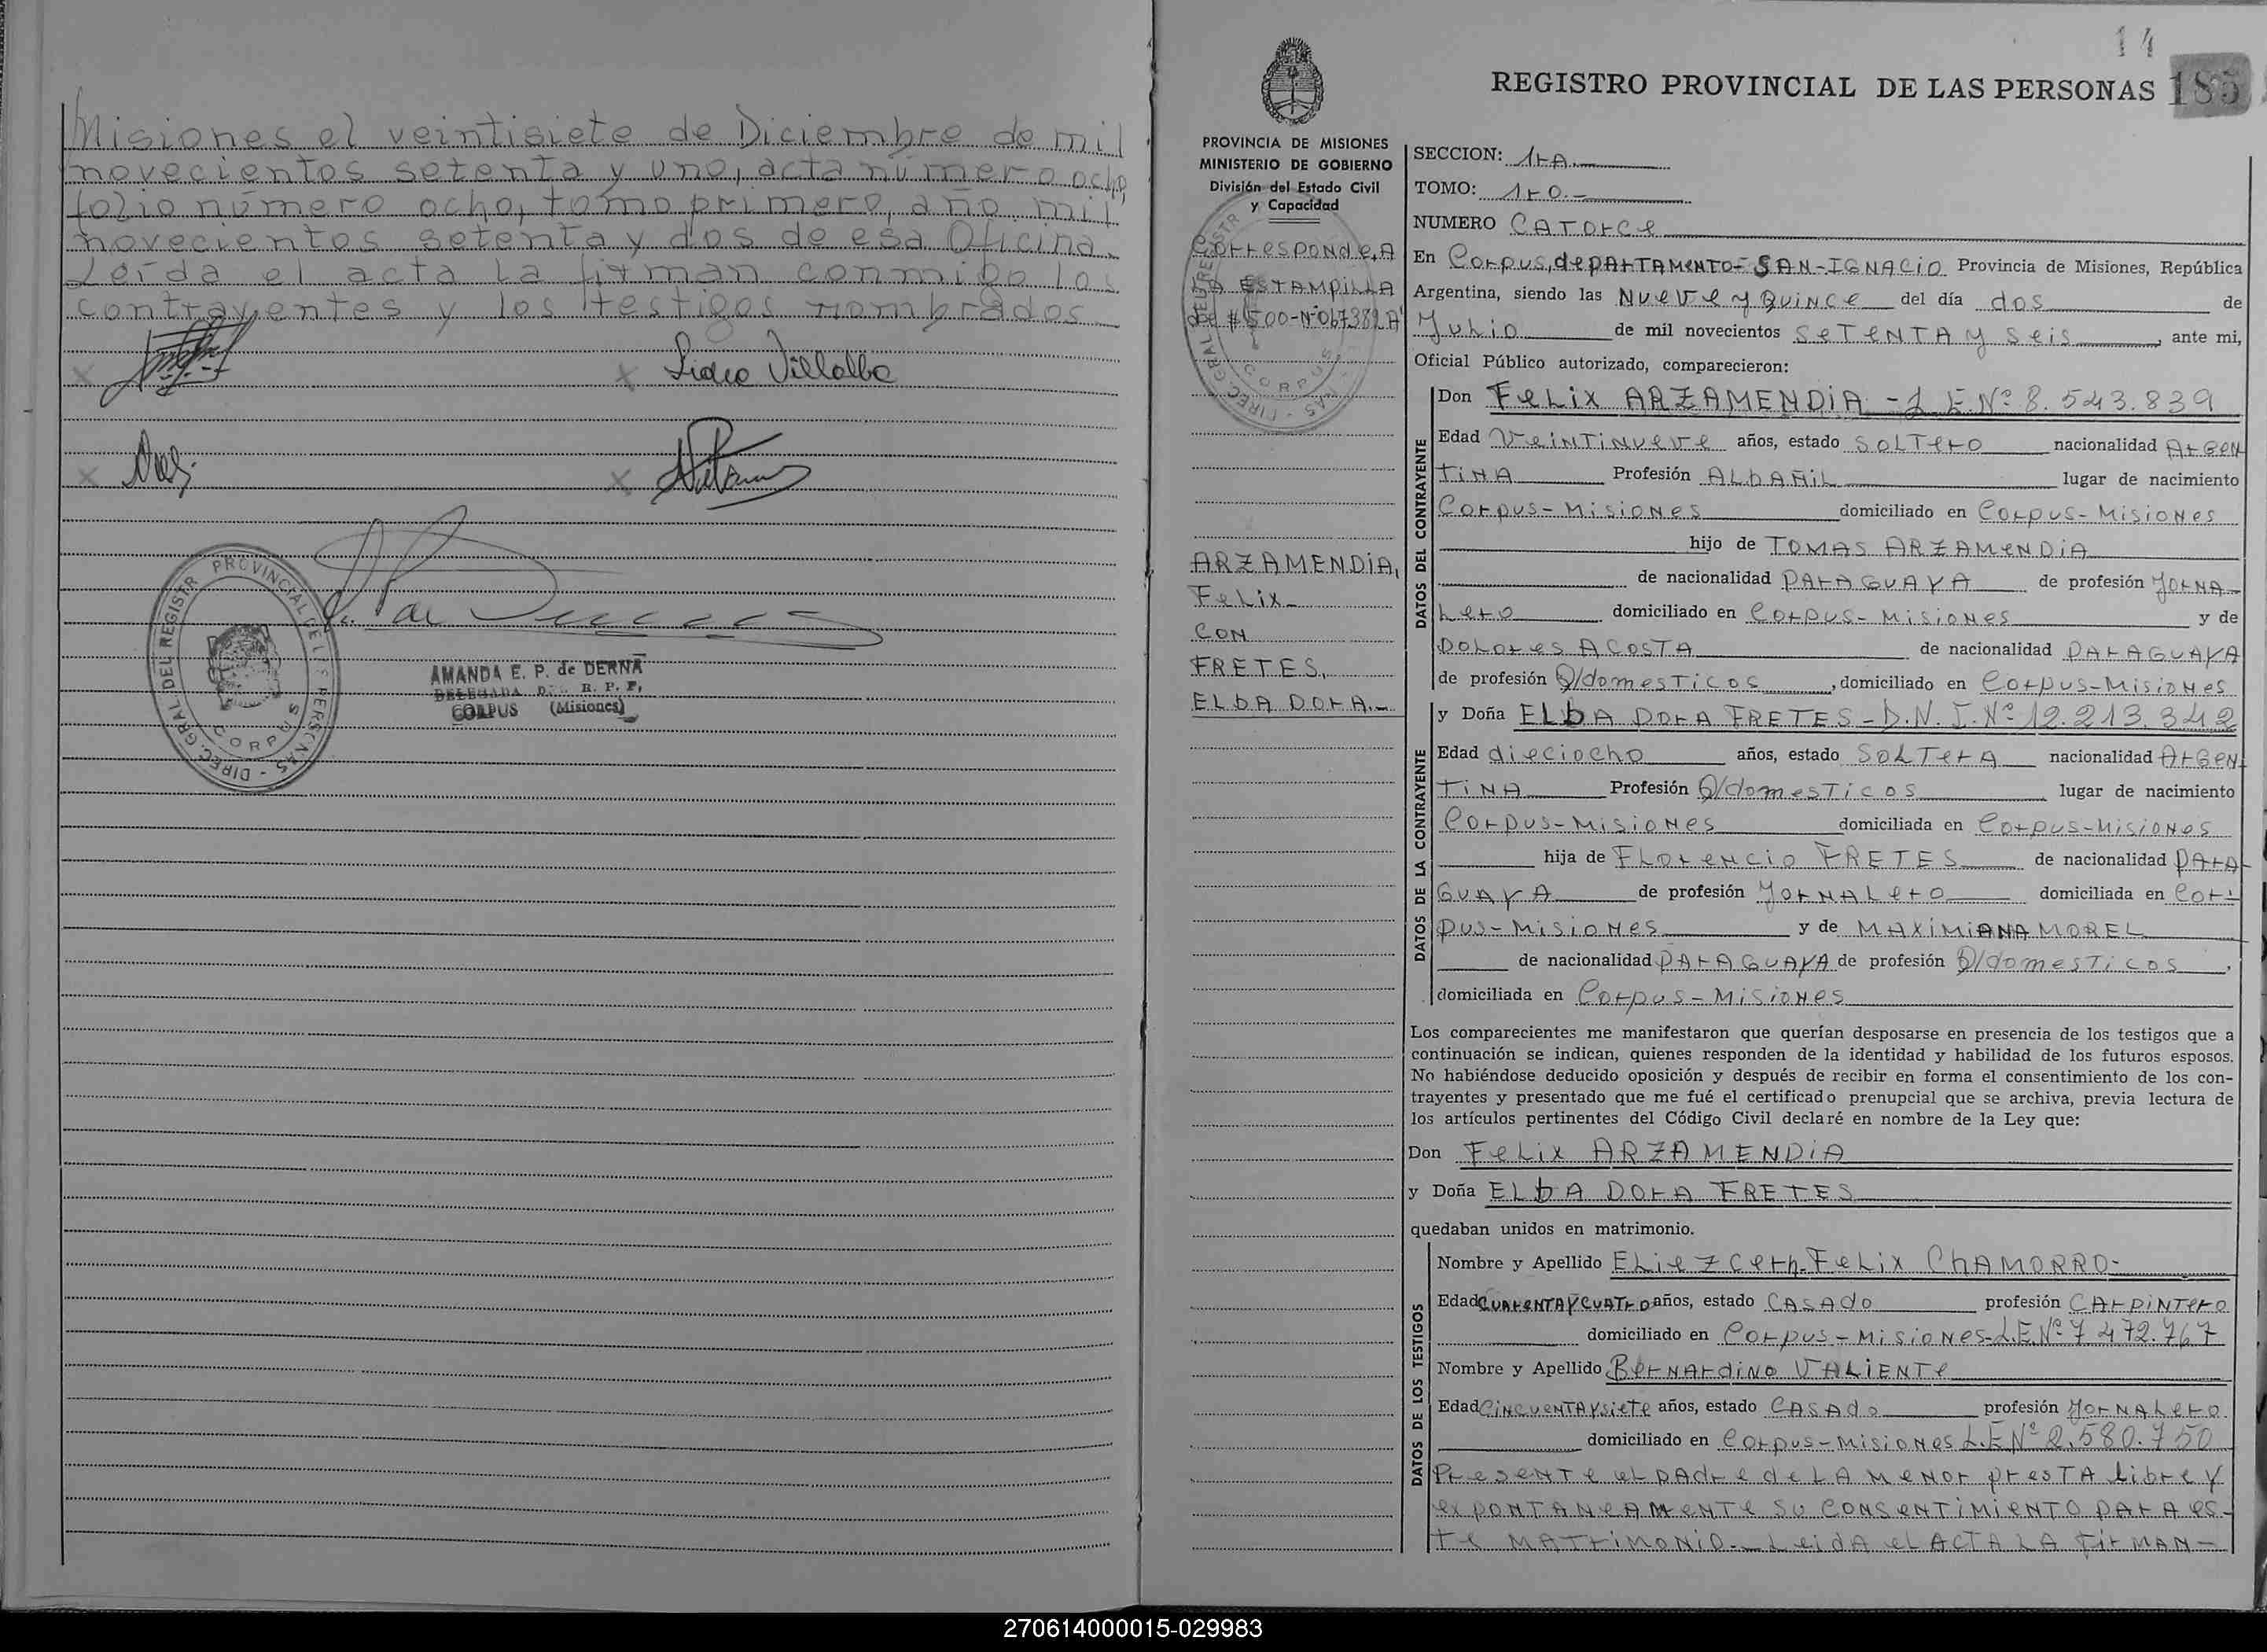 Misiones el veintisiete de Diciembre de mil
novecientos setenta y uno, acta número ocho,
folio número ocho, tomo primero, año mil
novecientos setenta y dos de esa Oficina
Leída el acta la firman conmigo los
contrayentes y los testigos nombrados
Villalba
DIREC. GRAL. DEL REGISTR PROVINCIAL DE L PERSONAS
CORPUS
AMANDA E. P. de DERNA
DELEGADA DEL R. P. P.
CORPUS (Misiones)
14
REGISTRO PROVINCIAL DE LAS PERSONAS 185
PROVINCIA DE MISIONES
MINISTERIO DE GOBIERNO
División del Estado Civil
y Capacidad
Corresponde A
LA ESTAMPILLA
de $500-Nº067389 A
CORPUS
ARZAMENDIA,
Felix
CON
FRETES,
ELbA DORA.-
SECCION: 1rA.
TOMO: 1rO.-
NUMERO CATOrce
En Corpus, depArTAMeNTO-SAN-IGNACiO Provincia de Misiones, República
Argentina, siendo las Nueve y Quince del día dos de
Julio de mil novecientos SeTENTA y seis, ante mi,
Oficial Público autorizado, comparecieron:
DATOS DEL CONTRAYENTE
Don FeLix ARZAMENDiA - L.E.Nº 8.543.839
Edad VeiNTiNueve años, estado SOLTerO nacionalidad ArGeN
TiNA Profesión ALbAÑiL lugar de nacimiento
Corpus-MisioNes domiciliado en Corpus-MisioNes
hijo de TOMAS ARZAMeNDiA
de nacionalidad PArAGUAYA de profesión JorNA
Lero domiciliado en Corpus-MisioNes y de
DOLores ACOSTA de nacionalidad PArAGUAYA
de profesión Q/domesTicos, domiciliado en Corpus-MisioNes
DATOS DE LA CONTRAYENTE
y Doña ELbA DOrA FRETES-D.N.I.Nº 12.213.342
Edad dieciocho años, estado SOLTerA nacionalidad ArGeN
TiNA Profesión Q/domesTicos lugar de nacimiento
Corpus-MisioNes domiciliada en Corpus-MisioNes
hija de FLoreNcio FRETES de nacionalidad PArA
GUAYA de profesión JorNALerO domiciliada en Cor-
pus-MisioNes y de MAXiMiANA MOREL
de nacionalidad PArAGUAYA de profesión Q/domesTicos,
domiciliada en Corpus-MisioNes
Los comparecientes me manifestaron que querían desposarse en presencia de los testigos que a
continuación se indican, quienes responden de la identidad y habilidad de los futuros esposos.
No habiéndose deducido oposición y después de recibir en forma el consentimiento de los con-
trayentes y presentado que me fué el certificado prenupcial que se archiva, previa lectura de
los artículos pertinentes del Código Civil declaré en nombre de la Ley que:
Don FeLix ARZAMENDiA
y Doña ELbA DOrA FRETES
quedaban unidos en matrimonio.
DATOS DE LOS TESTIGOS
Nombre y Apellido ELiezcerh-FeLix ChAMORRO-
Edad CUAreNTA Y CUATrO años, estado CASAdO profesión CArpiNTerO
domiciliado en Corpus-MisioNes-L.E.Nº 7.472.767
Nombre y Apellido BerNArdiNO VALiENTe
Edad CiNcueNTAYsieTe años, estado CASAdO profesión JorNALerO
domiciliado en Corpus-MisioNes L.E.Nº 2.580.750
PreseNTe eL pAdre de LA MeNOr presTA Libre y
expONTANeAMeNTe su CONseNTiMieNTO pArA es-
Te MATriMONiO.- LeidA eL ACTA LA firMAN-
270614000015-029983